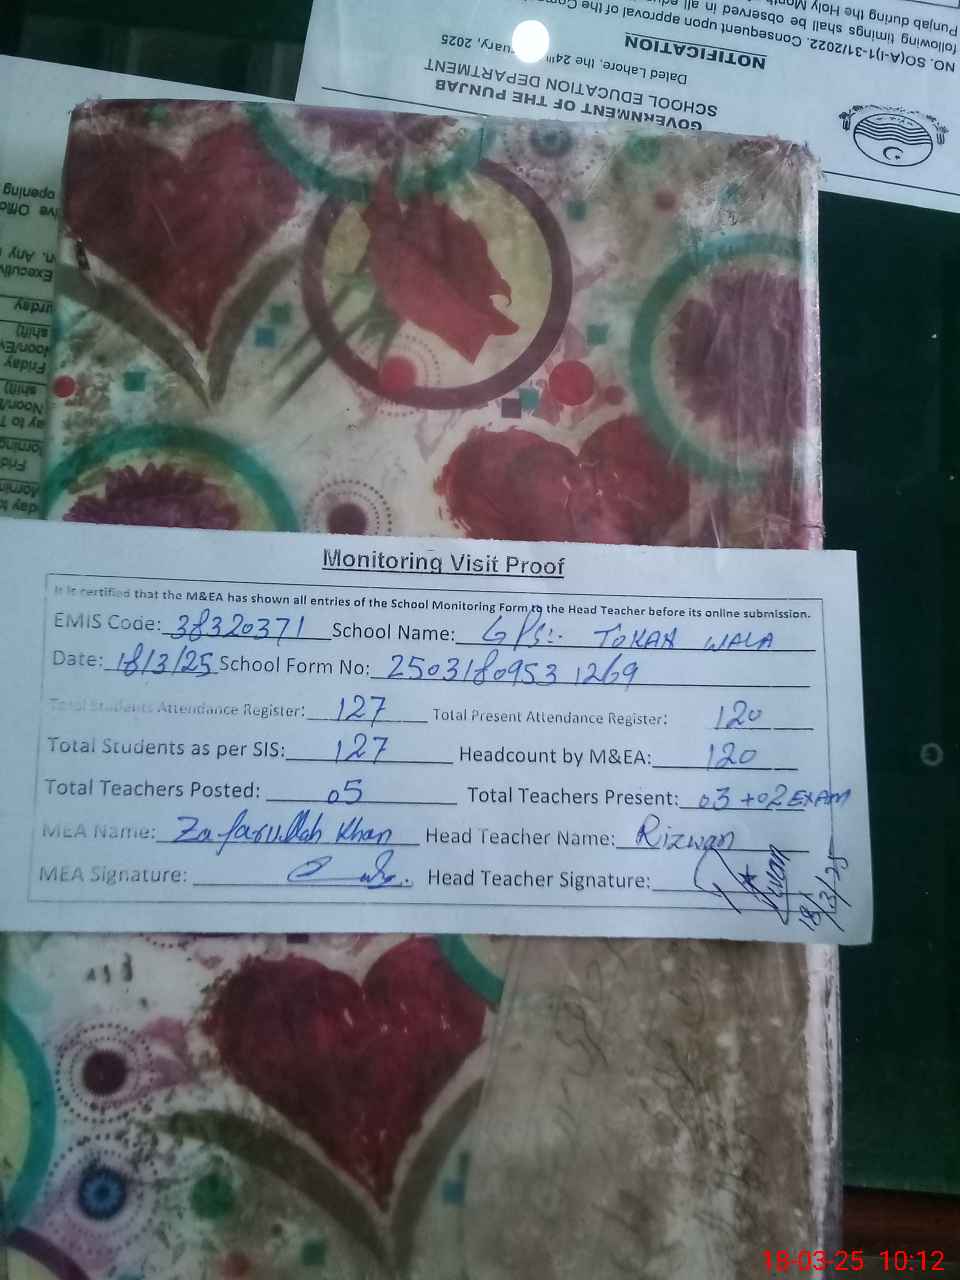 GOVERNMENT OF THE PUNJAB
SCHOOL EDUCATION DEPARTMENT
Dated Lahore, the 24th
2025
NOTIFICATION
NO. SO(A-I)1-31/2022. Consequent upon approval of the
following timings shall be observed in all
Punjab during the Holy
Monitoring Visit Proof
It is certified that the M&EA has shown all entries of the School Monitoring Form to the Head Teacher before its online submission.
EMIS Code: 38320371 School Name: GPS:. TORAH WALA
Date: 18/3/25 School Form No: 25031809531269
Total Students Attendance Register: 127 Total Present Attendance Register: 120
Total Students as per SIS: 127 Headcount by M&EA: 120
Total Teachers Posted: 05 Total Teachers Present: 03 +02 EXAM
MEA Name: Zafarullah Khan Head Teacher Name: Rizwan
MEA Signature: Head Teacher Signature:
18/3/25
18-03-25 10:12